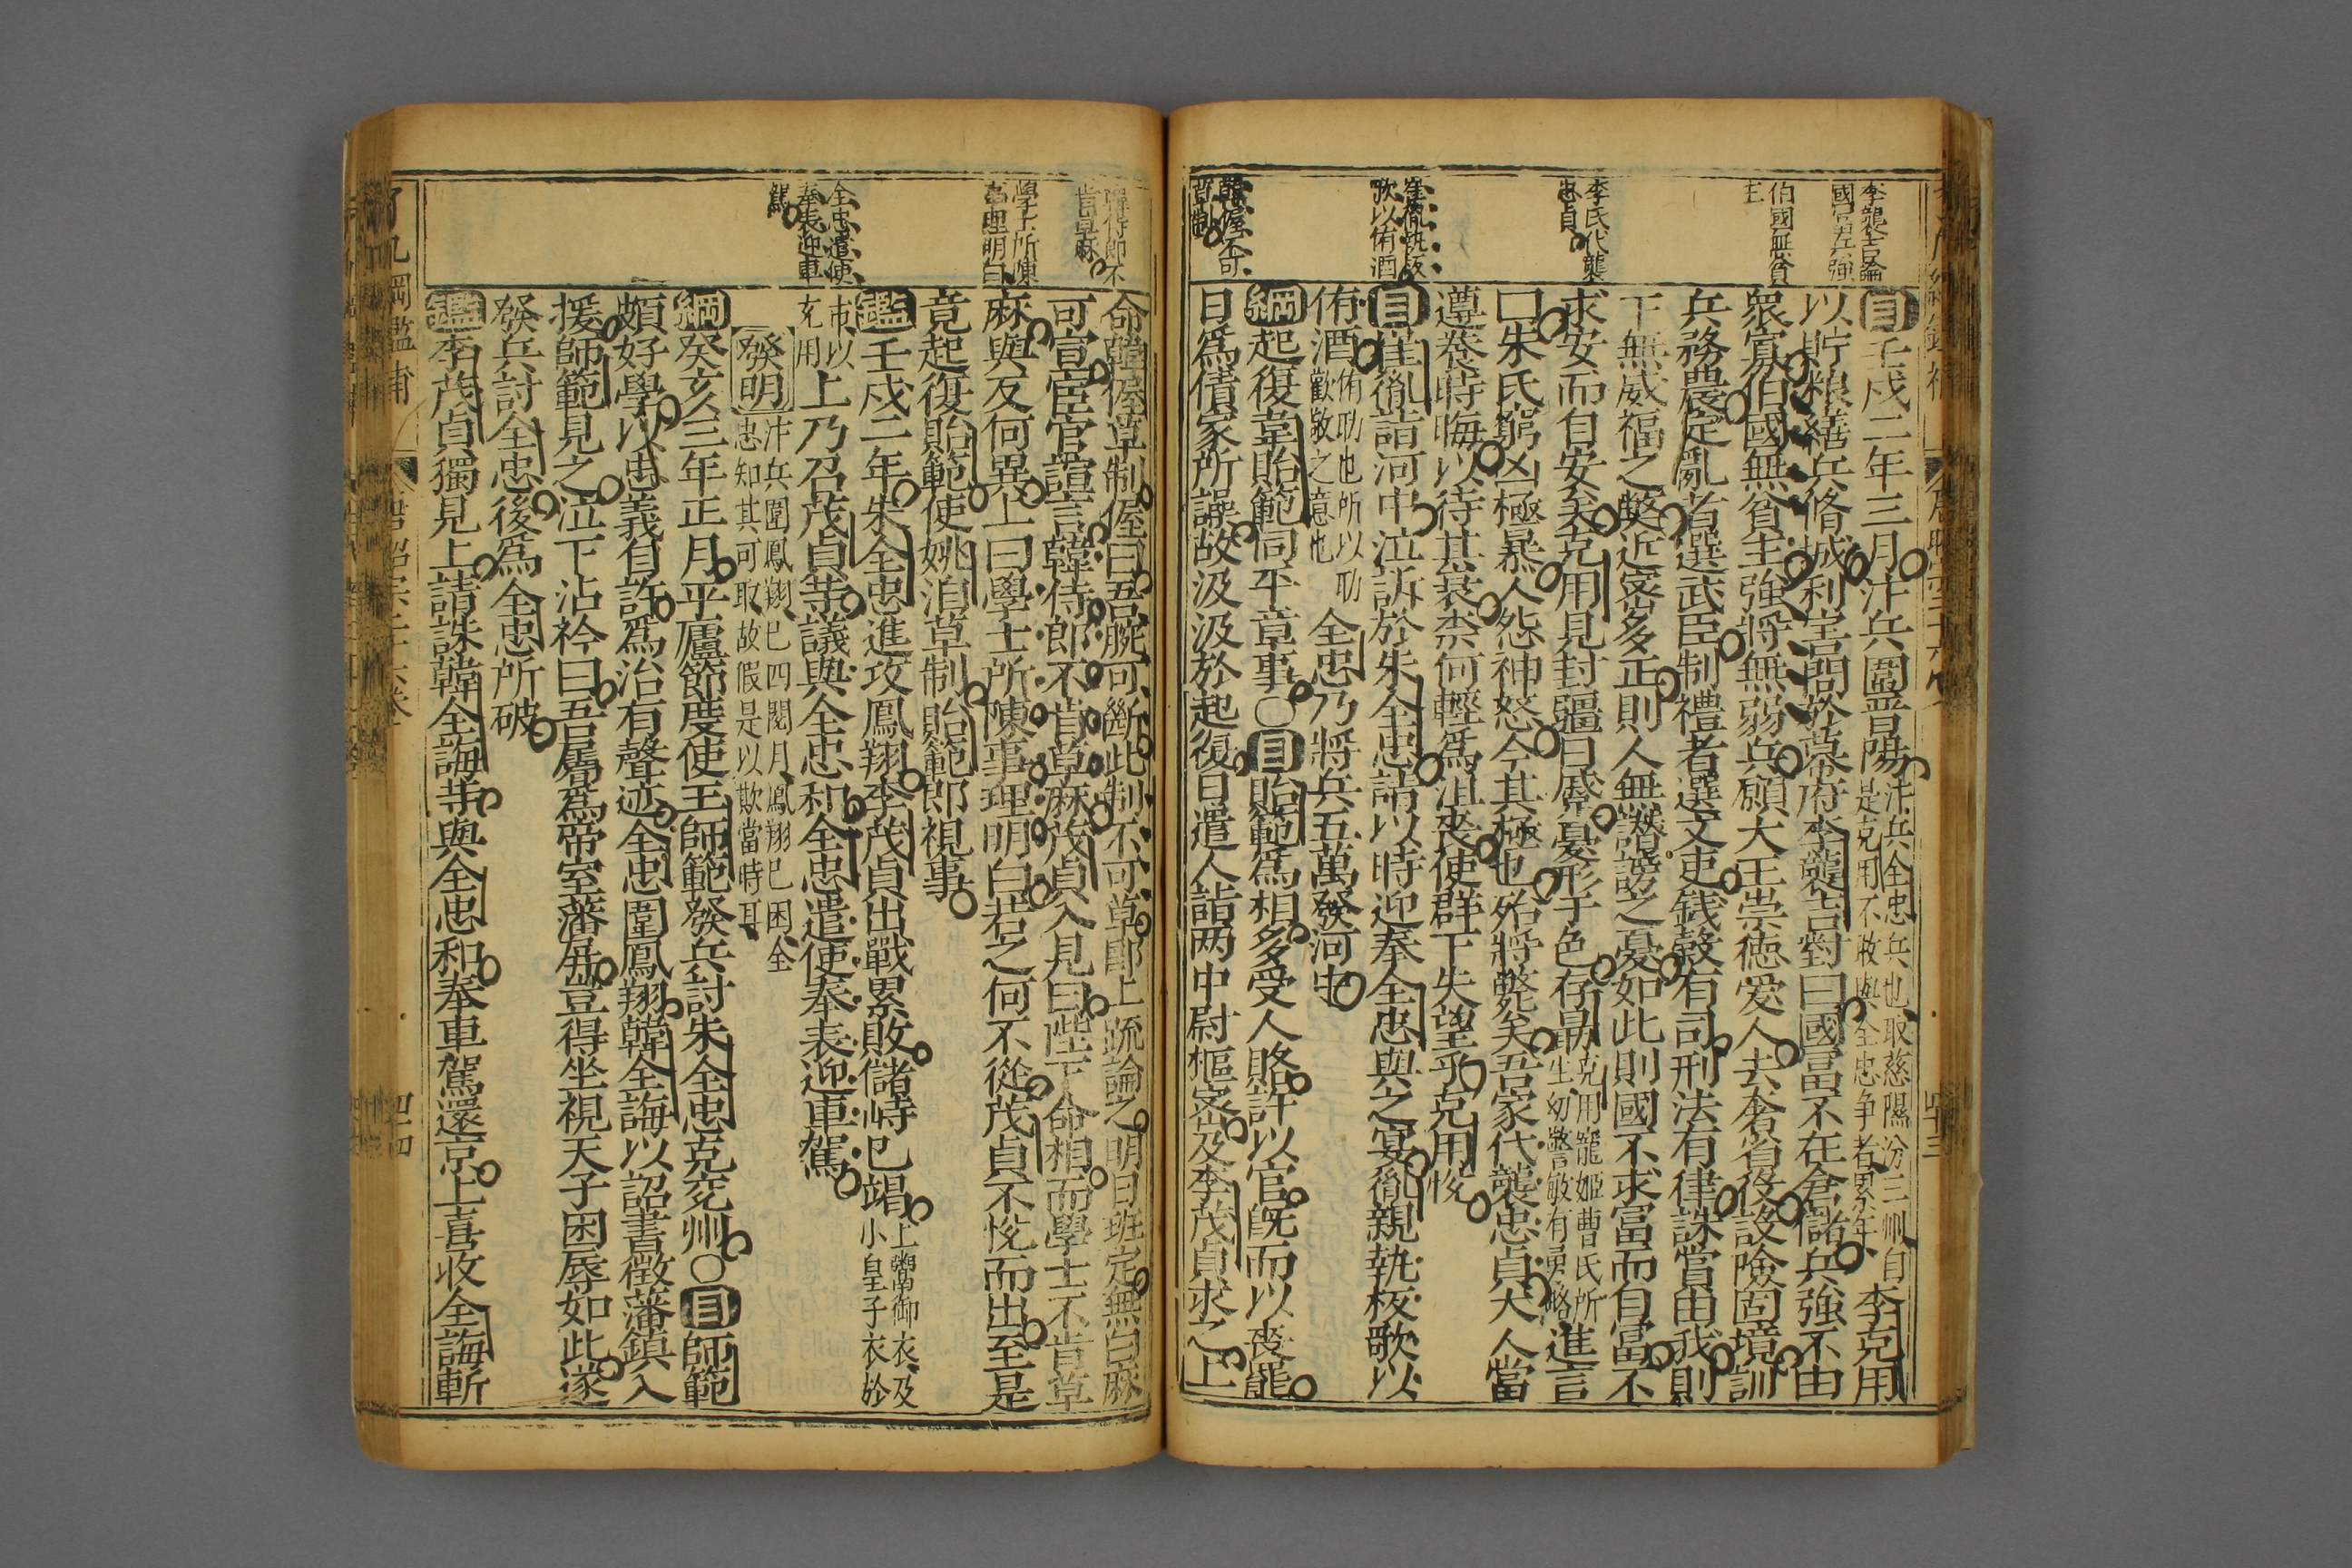 李襲吉論
國富兵強
伯國無貧
主
李氏代襲
忠貞
崔胤執板
歌以侑酒
韓偓不可
草制
目壬戌二年三月汴兵圍晉陽汴兵全忠兵也取慈隰汾三州自是克用不敢與全忠爭者累年李克用
以貯糧繕兵修城利害問於幕府李襲吉對曰國富不在倉儲兵強不由
眾寡伯國無貧主強將無弱兵願大王崇德愛人去奢省役設險固境訓
兵務農定亂者選武臣制禮者選文吏錢穀有司刑法有律誅賞由我則
下無威福之弊近密多正則人無譖謗之憂如此則國不求富而自富不
求安而自安矣克用見封疆日蹙憂形于色存勗克用寵姬曹氏所生幼警敏有勇略進言
曰朱氏窮凶極暴人怨神怒今其極也殆將斃矣吾家代襲忠貞大人當
遵養時晦以待其衰柰何輕為沮喪使群下失望乎克用悅
目崔胤詣河中泣訴於朱全忠請以時迎奉全忠與之宴胤親執板歌以
侑酒侑助也所以助歡敬之意也全忠乃將兵五萬發河中
綱起復韋貽範同平章事○目貽範為相多受人賂許以官既而以喪罷
日為債家所譟故汲汲於起復日遣人詣两中尉樞密及李茂貞求之上
韓侍郎不
肯草麻
學士所陳
事理明白
全忠遣使
奉表迎車
駕
命韓偓草制偓曰吾腕可斷此制不可草即上疏論之明日班定無白麻
可宣宦官諠言韓侍郎不肯草麻茂貞入見曰陛下命相而學士不肯草
麻與反何異上曰學士所陳事理明白若之何不從茂貞不悅而出至是
竟起復貽範使姚洎草制貽範即視事
鑑壬戌二年朱全忠進攻鳳翔李茂貞出戰累敗儲峙已竭上鬻御衣及小皇子衣於
市以充用上乃召茂貞等議與全忠和全忠遣使奉表迎車駕
發明汴兵圍鳳翔已四閱月鳳翔已困全忠知其可取故假是以欺當時耳
綱癸亥三年正月平盧節度使王師範發兵討朱全忠克兗州○目師範
頗好學以忠義自許為治有聲迹全忠圍鳳翔韓全誨以詔書徵藩鎮入
援師範見之泣下沾衿曰吾屬為帝室藩屏豈得坐視天子困辱如此遂
發兵討全忠後為全忠所破
鑑李茂貞獨見上請誅韓全誨等與全忠和奉車駕還京上喜收全誨斬
了凡綱鑑補
四四
四十三